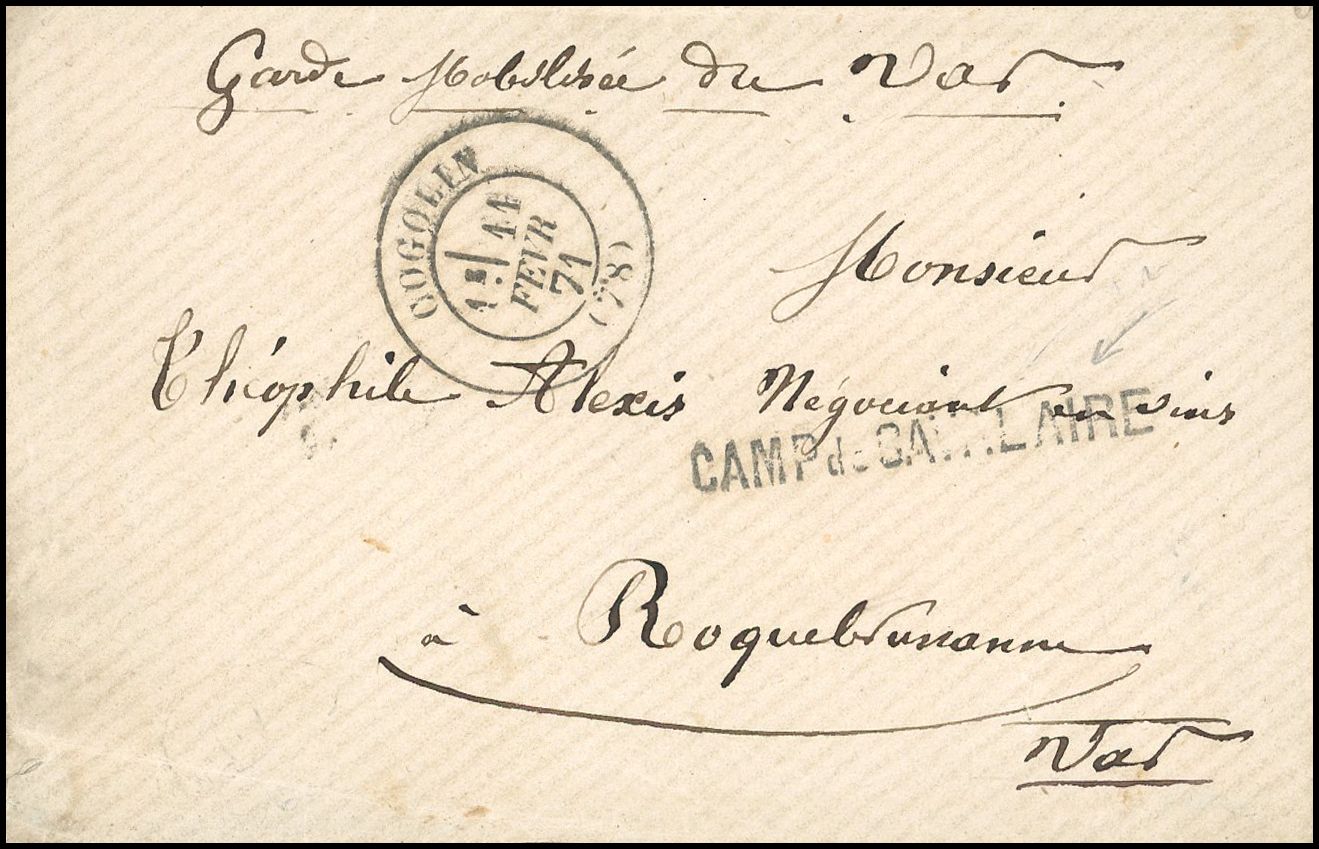 Garde Mobilisée du Var.
COGOLIN
1E 11
FEVR
71
(78)
Monsieur
Théophile Alexis Négociant en vins
CAMP de CAVALAIRE
à Roquebrussanne
Var